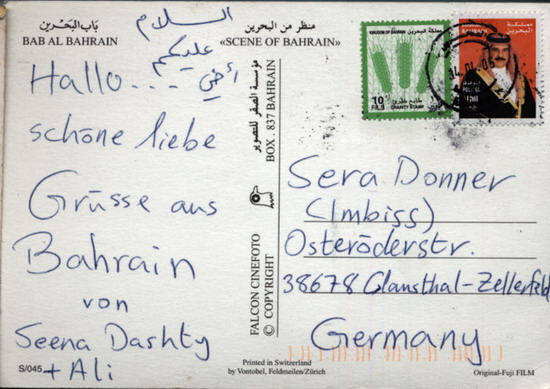 بَابُ البَحْرَين
BAB AL BAHRAIN
منظر من البحرين
«SCENE OF BAHRAIN»
السلام
عليكم
أخي
Hallo....
schöne liebe
Grüsse aus
Bahrain
von
Seena Dashty
+ Ali
S/045
مؤسسة الصقر للتصوير
BOX . 837 BAHRAIN
FALCON CINEFOTO
© COPYRIGHT
KINGDOM OF BAHRAIN مملكة البحرين
10
FILS
CHARITY STAMP
مملكة البحرين
BAHRAIN
14.04.05
Sera Donner
(Imbiss)
Osteröderstr.
38678 Clausthal-Zellerfeld
Germany
Printed in Switzerland
by Vontobel, Feldmeilen/Zürich
Original-Fuji FILM